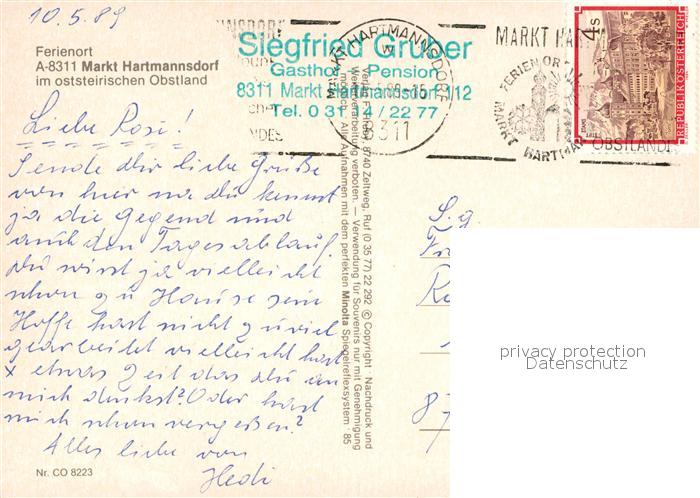 10.5.89
Ferienort
A-8311 Markt Hartmannsdorf
im oststeirischen Obstland
Siegfried Gruber
Gasthof - Pension
8311 Markt Hartmannsdorf 112
Tel. 0 31 14 / 22 77
MARKT HARTMANNSDORF
8311
MARKT HA
FERIENORT
MARKT HARTMA
OBSTLAND
4 S
REPUBLIK ÖSTERREICH
Liebe Rosi!
Sende dir liebe Grüße
von hier na du kennst
ja die Gegend und
auch den Tagesablauf.
Du wirst ja vielleicht
schon zu Hause sein
Hoffe hast nicht zuviel
gearbeitet vielleicht hast
x etwas Zeit das du an
mich denkst? Oder hast
mich schon vergeßen?
Alles liebe von
Hedi
Nr. CO 8223
8740 Zeltweg, Ruf (0 35 77) 22 292 © Copyright · Nachdruck und
Weiterverarbeitung verboten. — Verwendung für Souvenirs nur mit Genehmigung
möglich. Alle Aufnahmen mit dem perfekten Minolta Spiegelreflexsystem · 85
S. g.
Fr
8
privacy protection
Datenschutz